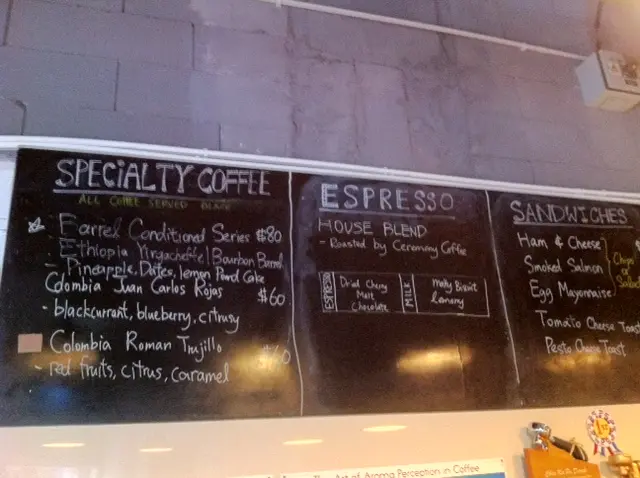 SPECIALTY COFFEE
ALL COFFEE SERVED BLACK
Barrel Conditioned Series $80
Ethiopia Yirgacheffe | Bourbon Barrel
- Pineapple, Dates, lemon Pound Cake
Colombia Juan Carlos Rojas $60
- blackcurrant, blueberry, citrusy
Colombia Roman Trujillo
- red fruits, citrus, caramel
ESPRESSO
HOUSE BLEND
- Roasted by Ceremony Coffee
ESPRESSO
Dried Cherry
Malt
Chocolate
MILK
Malty Biscuit
SANDWICHES
Ham & Cheese
Smoked Salmon
Egg Mayonnaise
Chips
or
Salad
Tomato Cheese Toast
Pesto Cheese Toast
The Art of Aroma Perception in Coffee